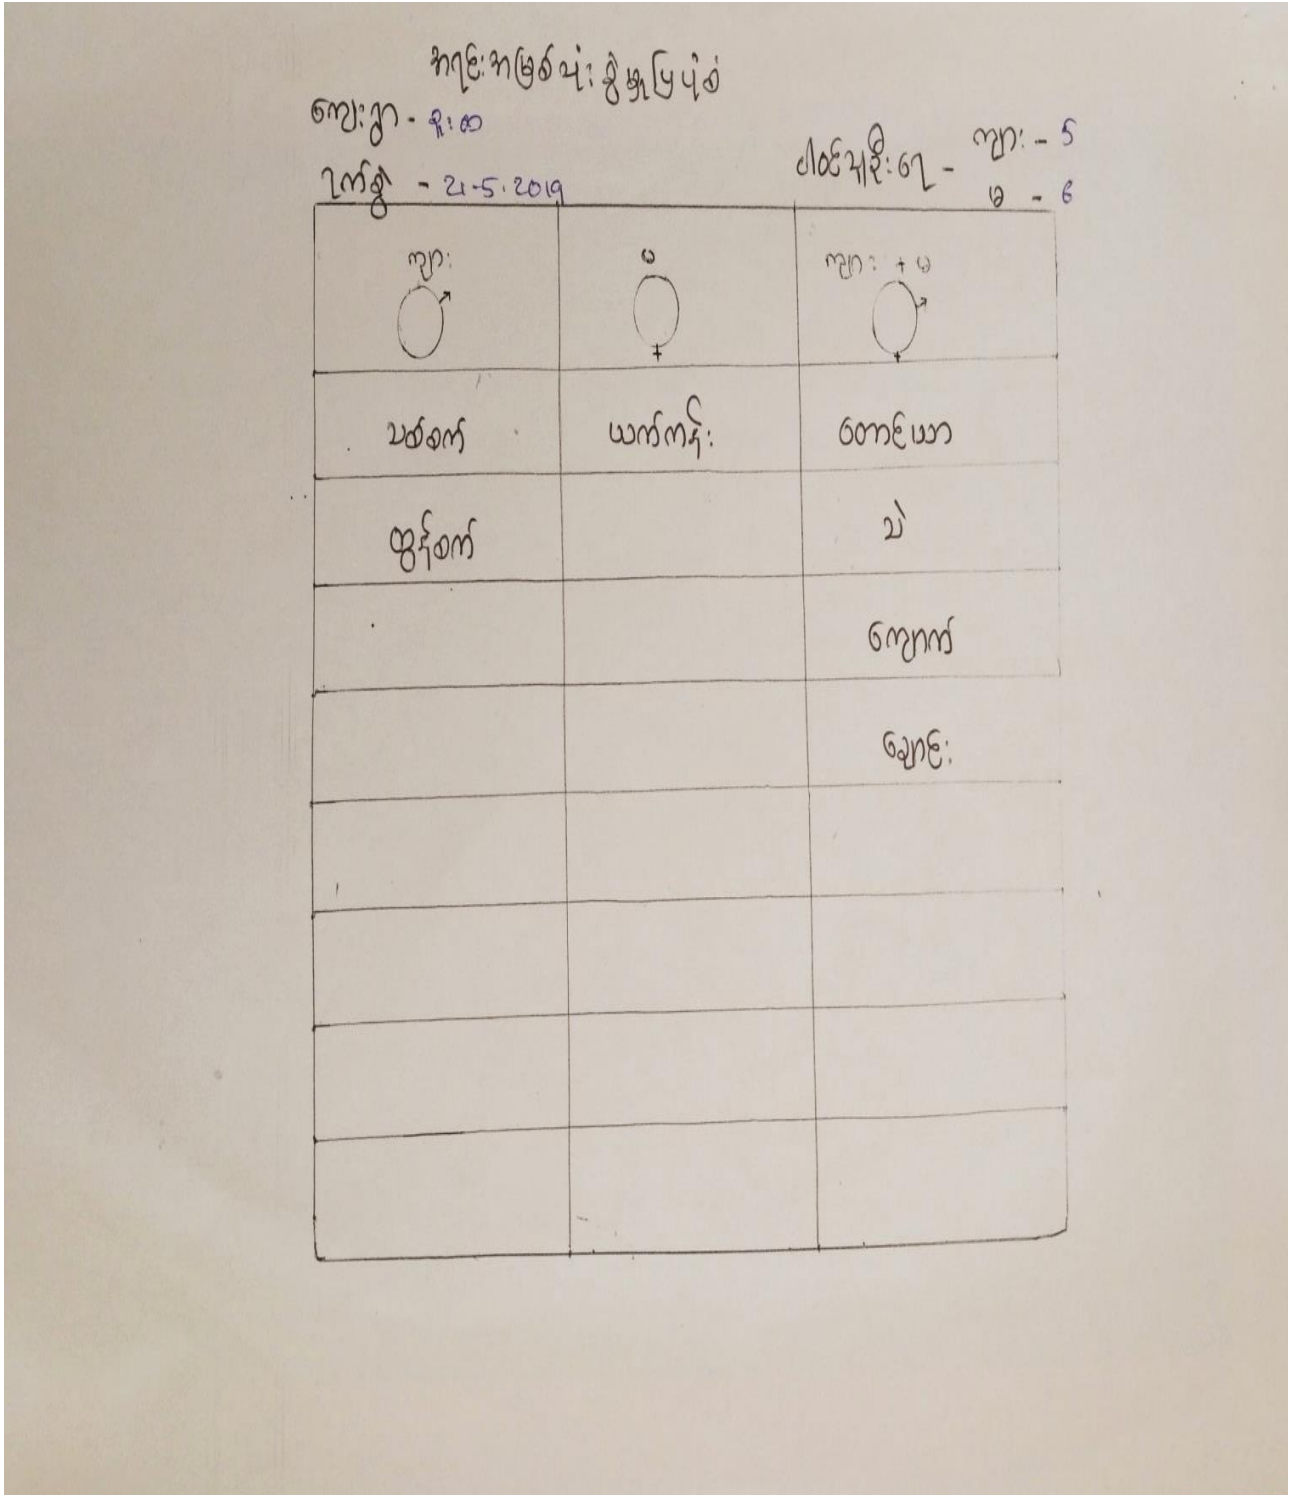 အရင်းအမြစ်သုံးစွဲမှုပြပုံစံ
ကျေးရွာ - စူးထ
ပါဝင်သူဦးရေ - ကျား - 5
မ - 6
ရက်စွဲ - 21-5.2019
ကျား မ ကျား + မ
သစ်စက် ယက်ကန်း တောင်ယာ
ထွန်စက် သဲ
ကျောက်
ချောင်း